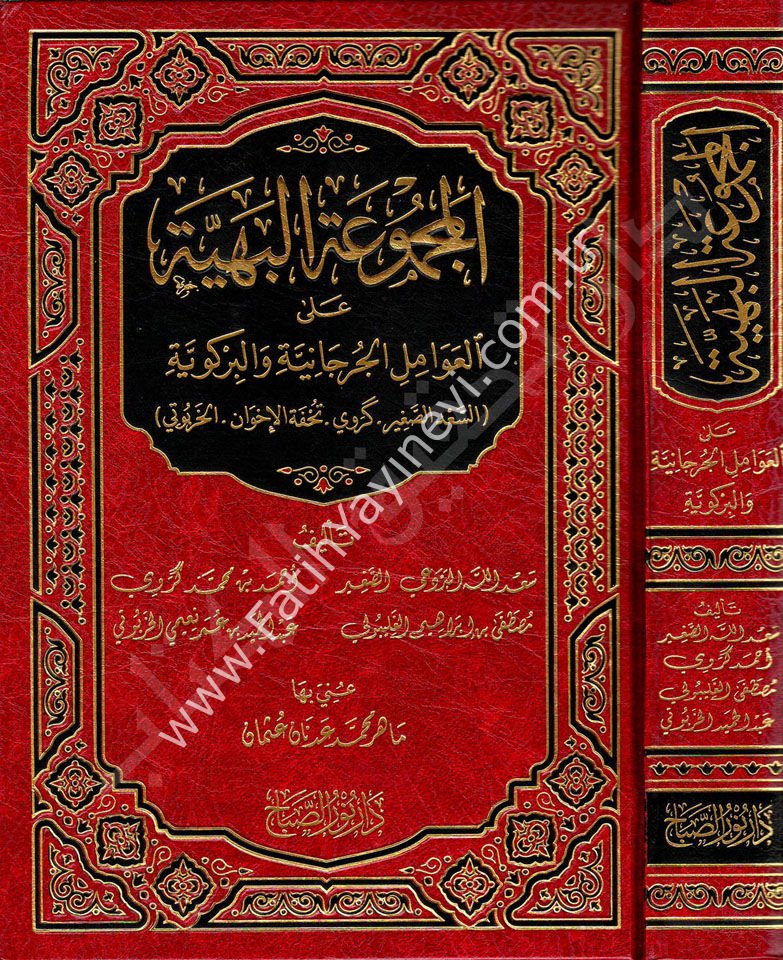 المجموعة البهية
على
العوامل الجرجانية والبركوية
(السعد الصغير. كروي. تحفة الإخوان. الخربوتي)
تأليف
سعد الله البردعي الصغير أحمد بن محمد كروي
مصطفى بن إبراهيم الغليبولي عبد الحميد بن عمر نعيمي الخربوتي
عني بها
ماهر محمد عدنان عثمان
دار نور الصباح
المجموعة البهية
على
العوامل الجرجانية
والبركوية
تأليف
سعد الله الصغير
أحمد كروي
مصطفى الغليبولي
عبد الحميد الخربوتي
دار نور الصباح
www.FatihYayinevi.com.tr